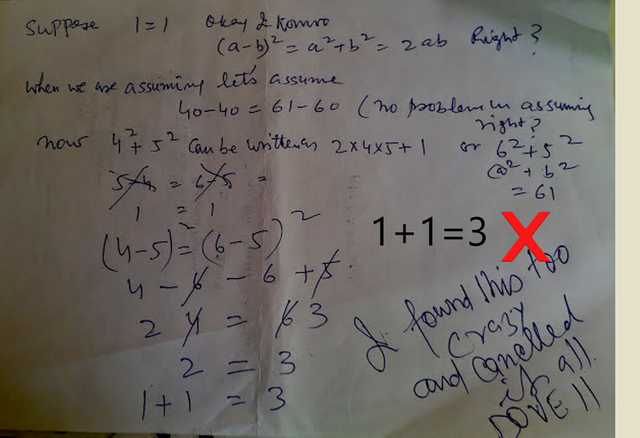 Suppose 1=1 Okay
(a-b)² = a²+b² = 2ab Right?
when we are assuming let's assume
40-40 = 61-60 (no problem in assuming
right?
now 4²+5² can be written as 2×4×5+1 or 6²+5²
a²+b²
5-4 = 6-5 =
= 61
1 = 1
(4-5)² = (6-5)²
1+1=3 X
4-6 - 6+5.
2 4 = 6 3
2 = 3
1+1 = 3
I found this too
crazy
and cancelled
it all
LOVE !!